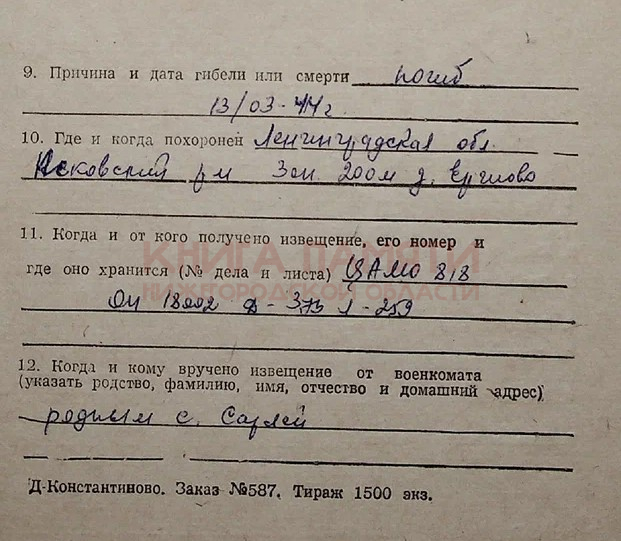 9. Причина и дата гибели или смерти погиб
13/03-44г.
10. Где и когда похоронен Ленинградская обл.
Псковский р-н Зап. 200м д. Ершово
11. Когда и от кого получено извещение, его номер и
где оно хранится (№ дела и листа) ЦАМО 818
ОП 18002 Д-373 Л-259
12. Когда и кому вручено извещение от военкомата
(указать родство, фамилию, имя, отчество и домашний адрес)
родным с. Сарлей
Д-Константиново. Заказ №587. Тираж 1500 экз.
КНИГА ПАМЯТИ
НИЖЕГОРОДСКОЙ ОБЛАСТИ